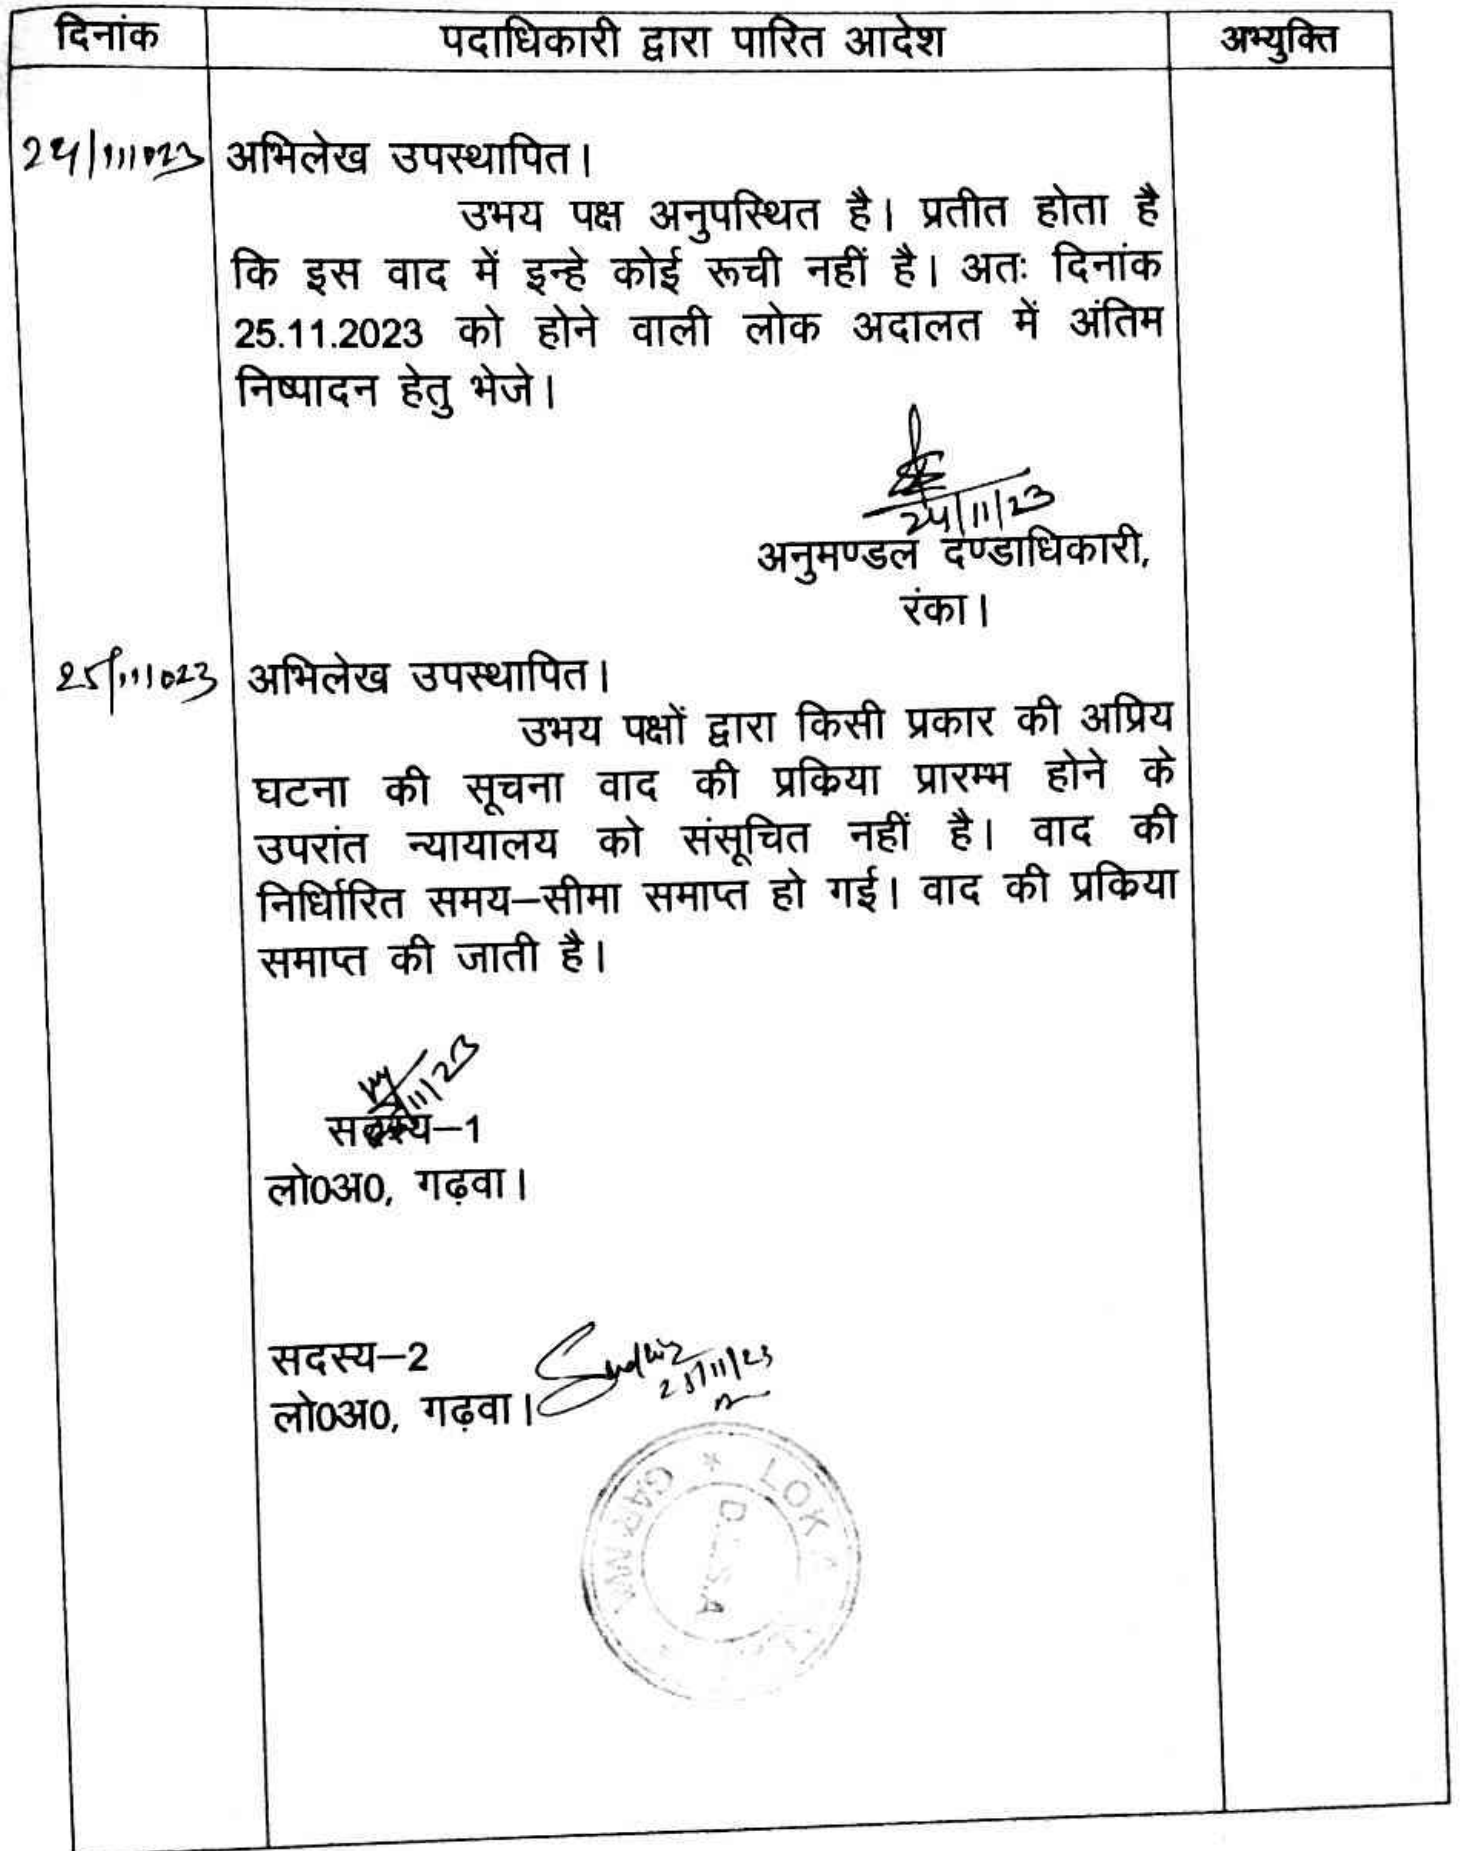 दिनांक पदाधिकारी द्वारा पारित आदेश अभ्युक्ति
24/11/023 अभिलेख उपस्थापित।
उभय पक्ष अनुपस्थित है। प्रतीत होता है
कि इस वाद में इन्हे कोई रूची नहीं है। अतः दिनांक
25.11.2023 को होने वाली लोक अदालत में अंतिम
निष्पादन हेतु भेजे।
24/11/23
अनुमण्डल दण्डाधिकारी,
रंका।
25/11/023 अभिलेख उपस्थापित।
उभय पक्षों द्वारा किसी प्रकार की अप्रिय
घटना की सूचना वाद की प्रकिया प्रारम्भ होने के
उपरांत न्यायालय को संसूचित नहीं है। वाद की
निर्धािरित समय–सीमा समाप्त हो गई। वाद की प्रकिया
समाप्त की जाती है।
सदस्य–1
लो0अ0, गढ़वा।
सदस्य–2
लो0अ0, गढ़वा।
25/11/23
LOK
GARHWA